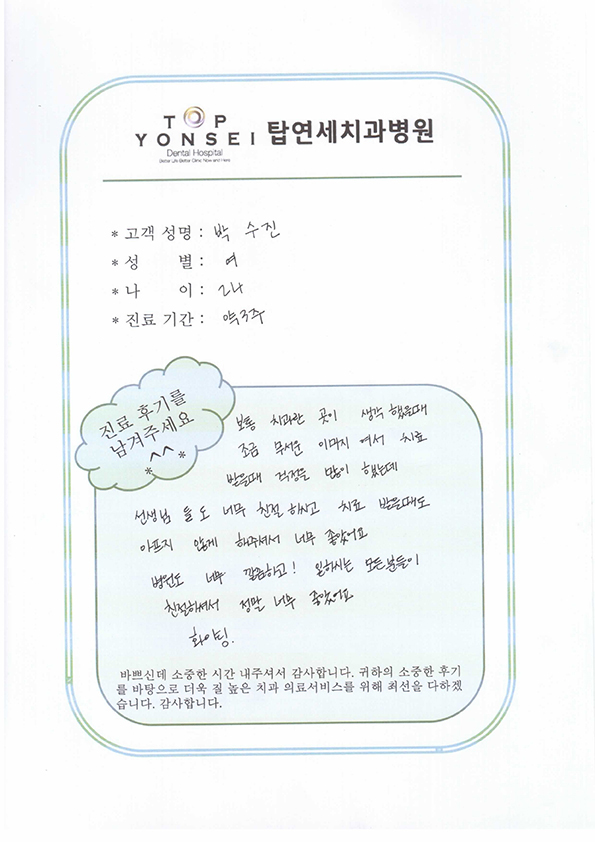 TOP
YONSEI 탑연세치과병원
Dental Hospital
Better Life Better Clinic Now and Here
* 고객 성명 : 박 수진
* 성 별 : 여
* 나 이 : 24
* 진료 기간 : 약3주
진료 후기를
남겨주세요
* ^^ *
보통 치과란 곳이 생각 했을때
조금 무서운 이미지 여서 치료
받을때 걱정을 많이 했는데
선생님 들도 너무 친절 하시고 치료 받을때도
아프지 않게 해주셔서 너무 좋았어요
병원도 너무 깔끔하고! 일하시는 모든분들이
친절하셔서 정말 너무 좋았어요
화이팅.
바쁘신데 소중한 시간 내주셔서 감사합니다. 귀하의 소중한 후기
를 바탕으로 더욱 질 높은 치과 의료서비스를 위해 최선을 다하겠
습니다. 감사합니다.